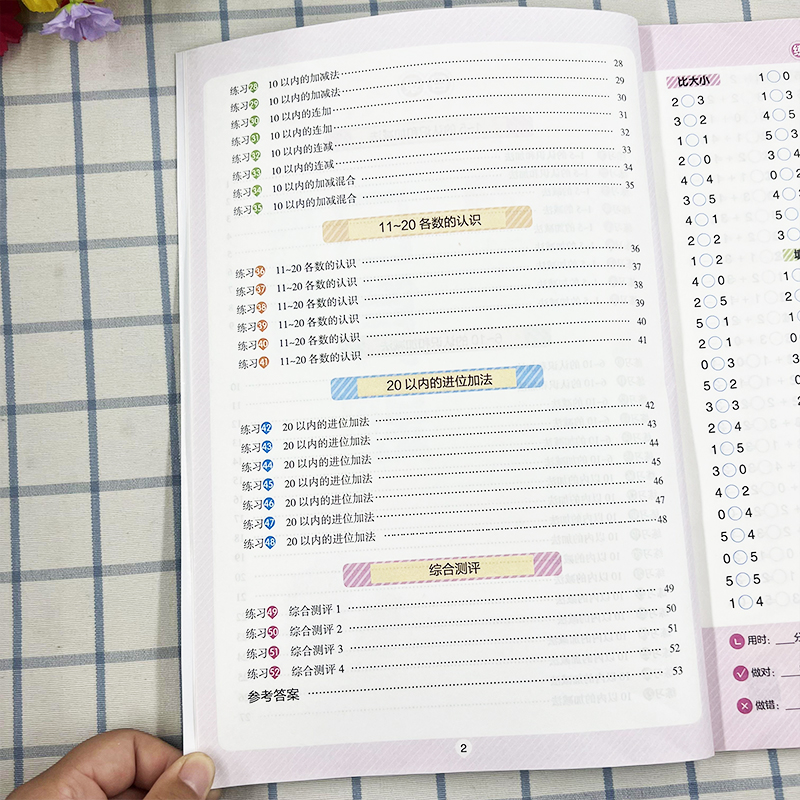 练习28 10以内的加减法 28
练习29 10以内的加减法 29
练习30 10以内的连加 30
练习31 10以内的连加 31
练习32 10以内的连减 32
练习33 10以内的连减 33
练习34 10以内的加减混合 34
练习35 10以内的加减混合 35
11~20各数的认识
练习36 11~20各数的认识 36
练习37 11~20各数的认识 37
练习38 11~20各数的认识 38
练习39 11~20各数的认识 39
练习40 11~20各数的认识 40
练习41 11~20各数的认识 41
20以内的进位加法
练习42 20以内的进位加法 42
练习43 20以内的进位加法 43
练习44 20以内的进位加法 44
练习45 20以内的进位加法 45
练习46 20以内的进位加法 46
练习47 20以内的进位加法 47
练习48 20以内的进位加法 48
综合测评
练习49 综合测评1 49
练习50 综合测评2 50
练习51 综合测评3 51
练习52 综合测评4 52
参考答案 53
2
比大小
2○3
3○2
1○1
2○0
4○4
3○5
4○1
2○2
1○2
4○0
2○5
5○1
2○1
0○3
5○2
3○3
2○4
1○5
3○0
4○2
0○4
5○4
0○5
5○5
1○4
1○0
1○3
4○5
5○3
3○4
0○2
用时：
做对：
做错：